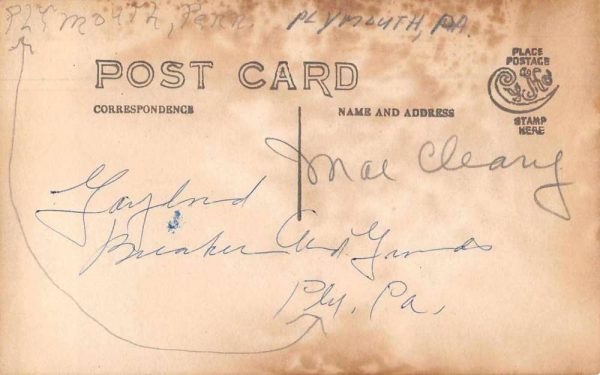 Plymouth, Penn. PLYMOUTH, PA.
POST CARD
PLACE
POSTAGE
CYKO
STAMP
HERE
CORRESPONDENCE
NAME AND ADDRESS
Mae Cleary
Gaylord
Breaker And Grounds
Ply. Pa.